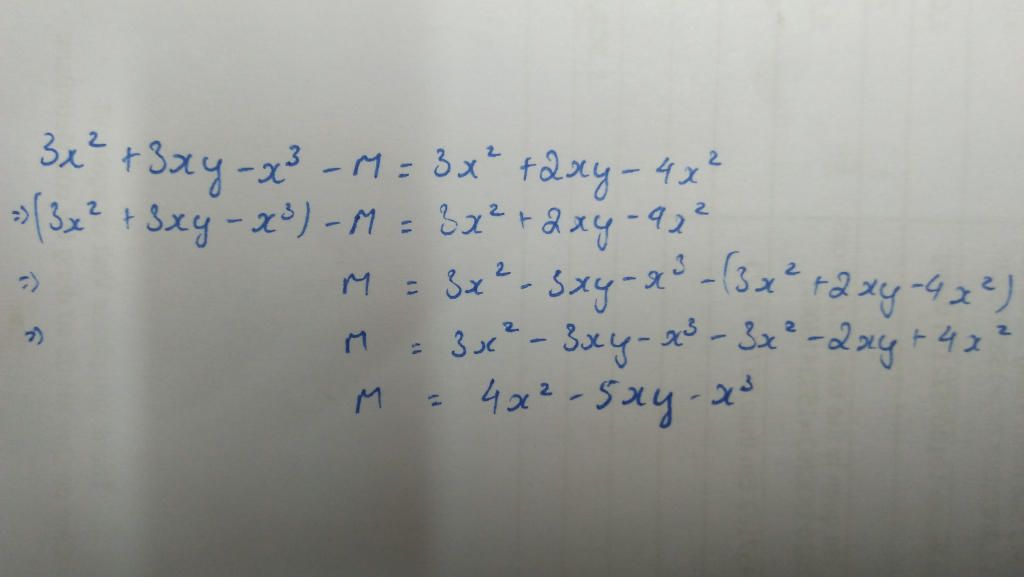 3x² + 3xy - x³ - M = 3x² + 2xy - 4x²
=> (3x² + 3xy - x³) - M = 3x² + 2xy - 4x²
=> M = 3x² - 3xy - x³ - (3x² + 2xy - 4x²)
=> M = 3x² - 3xy - x³ - 3x² - 2xy + 4x²
M = 4x² - 5xy - x³